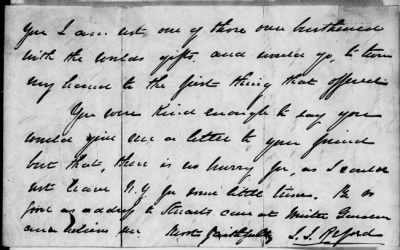 you I am not one of those over burthened
with the worlds gifts, and would go, to turn
my hand to the first thing that offered
You were kind enough to say you
would give me a letter to your friend
but that, there is no hurry for, as I could
not leave N.Y for some little time. Be so
good as address to Stuarts care at
and believe me Most faithfully